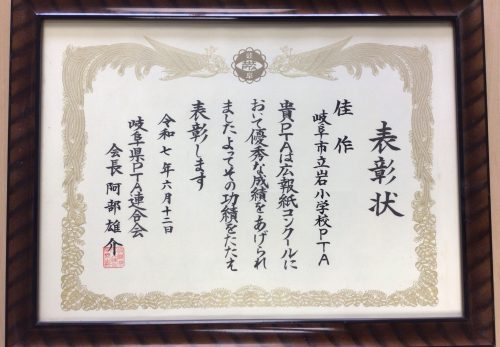 表彰状
佳作
岐阜市立岩小学校PTA
貴PTAは広報紙コンクールに
おいて優秀な成績をあげられ
ましたよってその功績をたたえ
表彰します
令和七年六月十二日
岐阜県PTA連合会
会長 阿部雄介